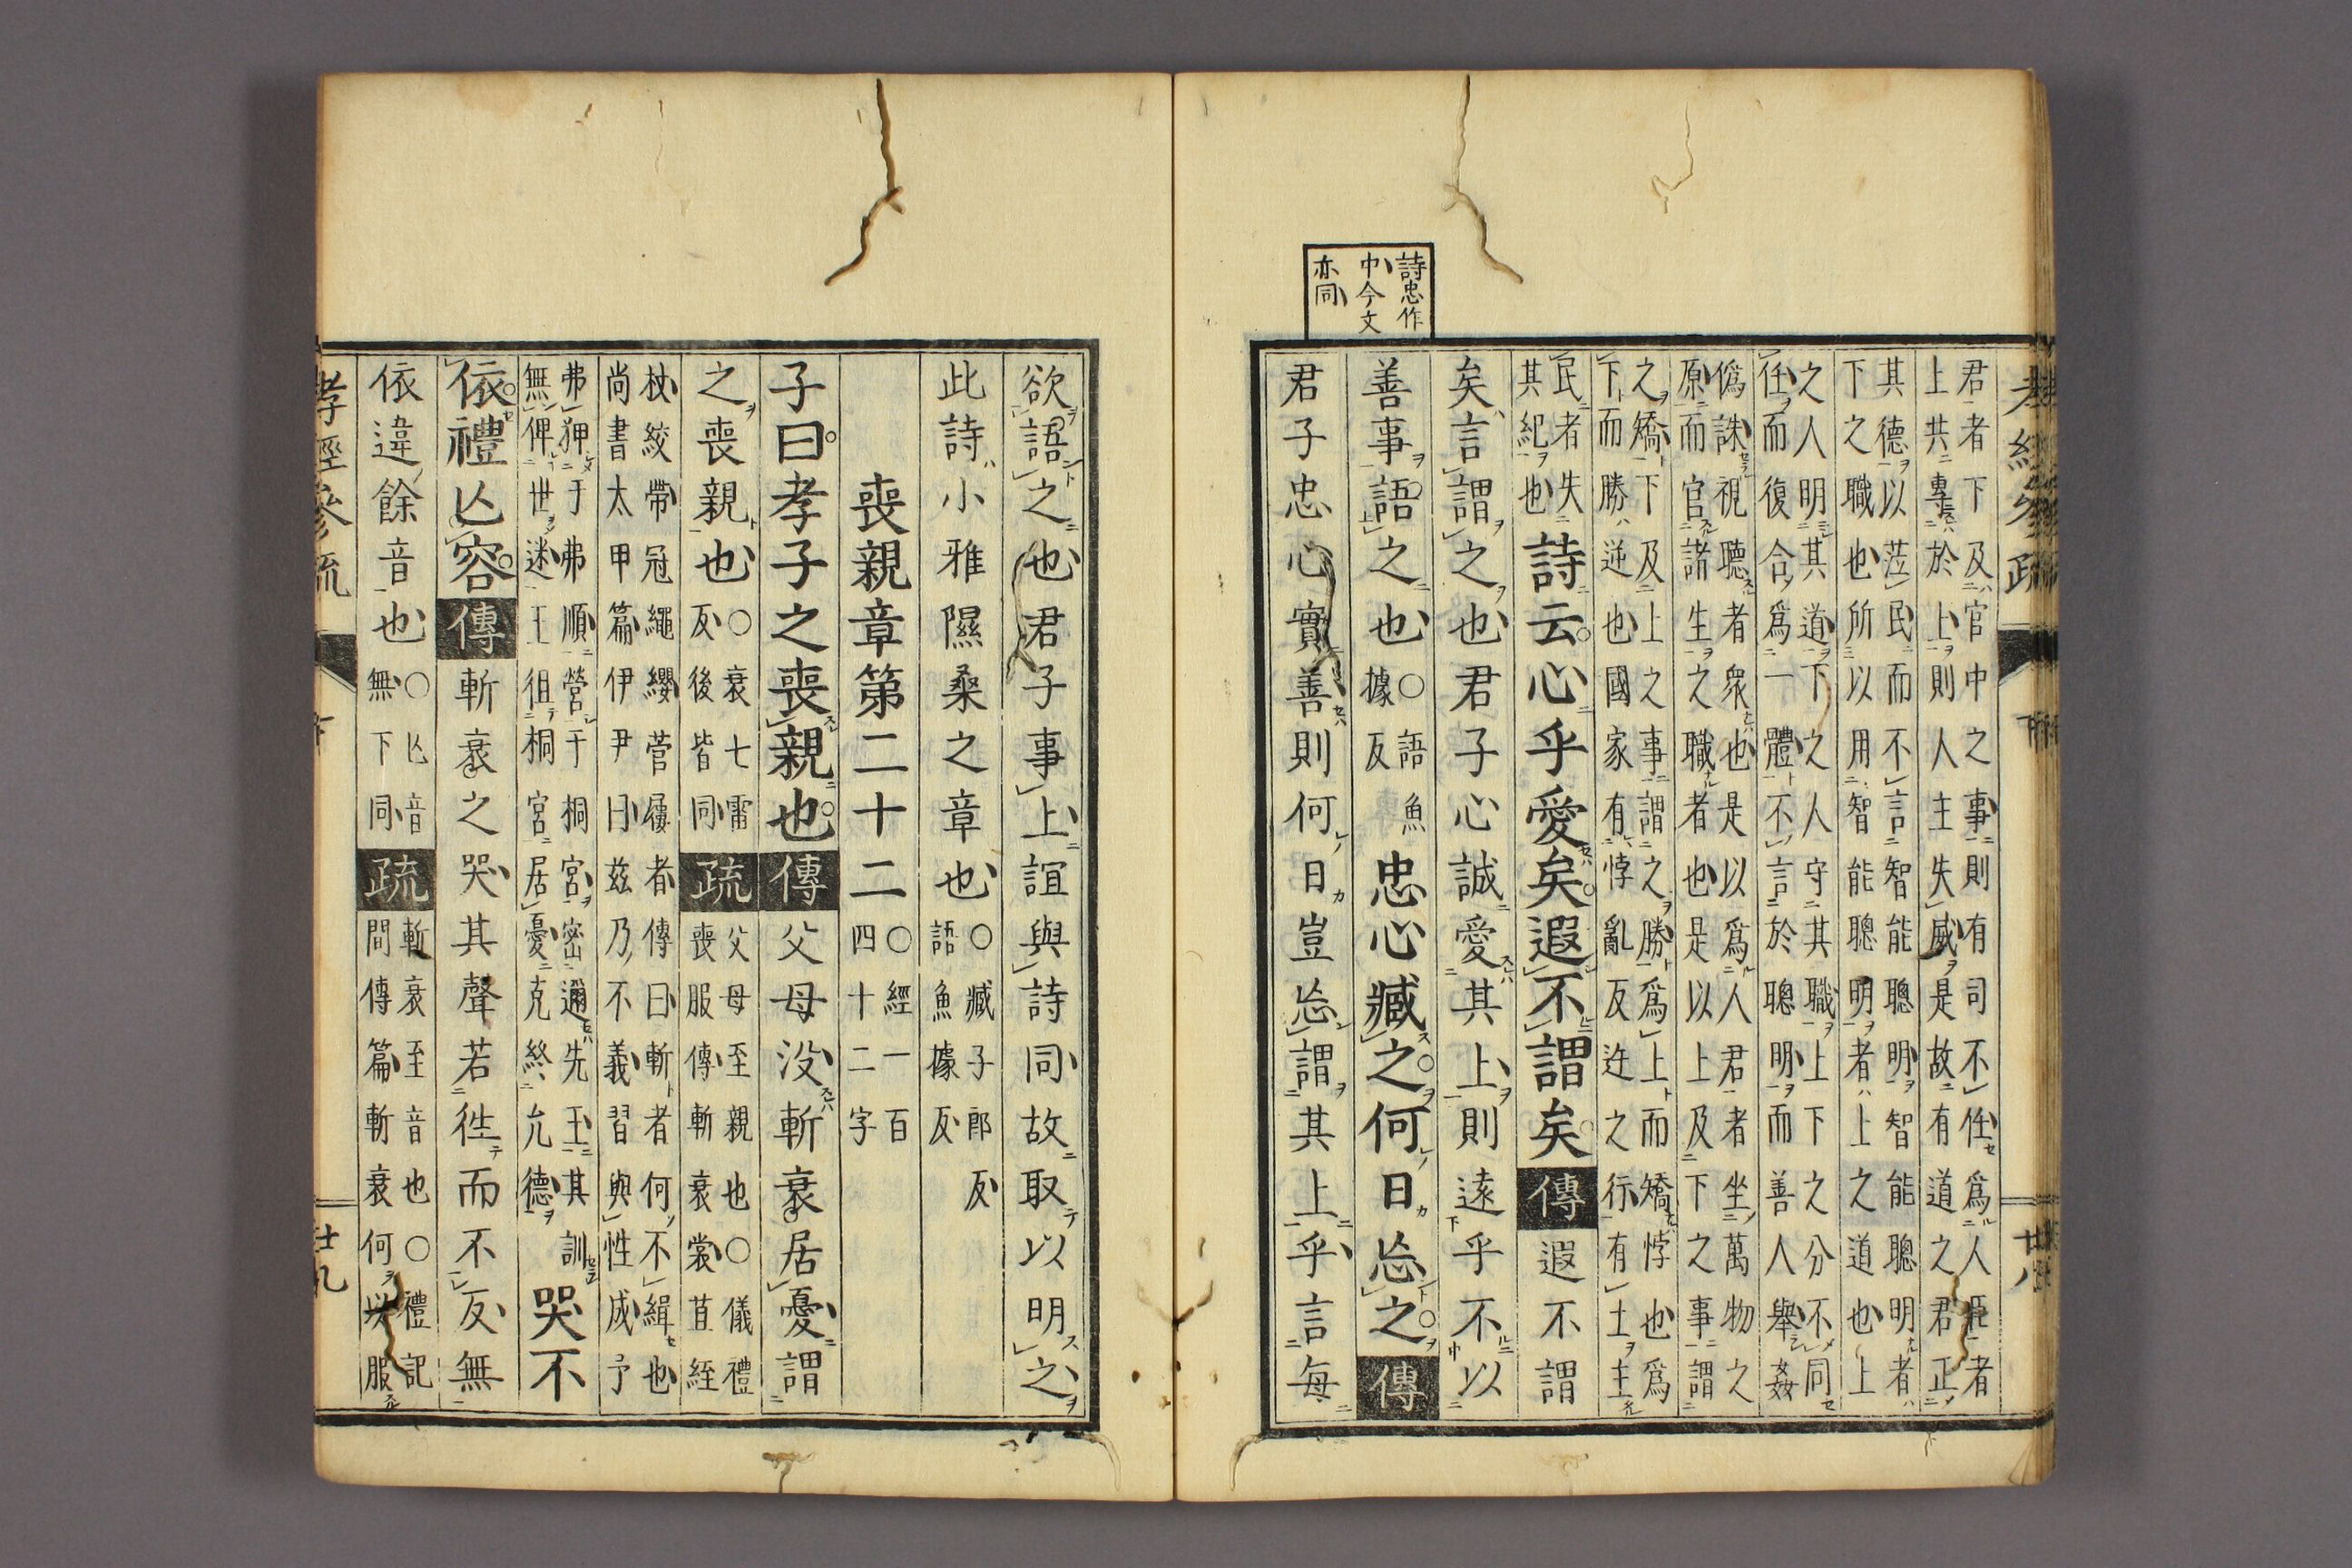 詩忠作
中今文
亦同
君者下及官中之事則有司不任爲人臣者
上共專於上則人主失威是故有道之君正
其德以莅民而不言智能聰明智能聰明者
下之職也所以用智能聰明者上之道也上
之人明其道下之人守其職上下之分不同
任而復合爲一體不言於聰明而善人舉姦
僞誅視聽者衆也是以爲人君者坐萬物之
原而官諸生之職者也是以上及下之事謂
之矯下及上之事謂之勝爲上而矯悖也爲
下而勝逆也國家有悖亂反迕之行有土主
民者失
其紀也
詩云心乎愛矣遐不謂矣傳遐不謂
矣言謂之也君子心誠愛其上則遠乎不以
善事語之也
○語魚
據反
忠心臧之何日忘之傳
君子忠心實善則何日豈忘謂其上乎言每
欲語之也君子事上誼與詩同故取以明之
此詩小雅隰桑之章也
○臧子郎反
語魚據反
喪親章第二十二
○經一百
四十二字
子曰孝子之喪親也傳父母没斬衰居憂謂
之喪親也
○衰七雷
反後皆同
疏
父母至親也○儀禮
喪服傳斬衰裳苴絰
杖絞帶冠繩纓菅屨者傳曰斬者何不緝也
尚書太甲篇伊尹曰茲乃不義習與性成予
弗狎于弗順營于桐宮密邇先王其訓
無俾世迷王徂桐宮居憂克終允德
哭不
依禮亾容傳斬衰之哭其聲若往而不反無
依違餘音也
○亾音
無下同
疏
斬衰至音也○禮記
間傳篇斬衰何以服
孝經參疏
廿九